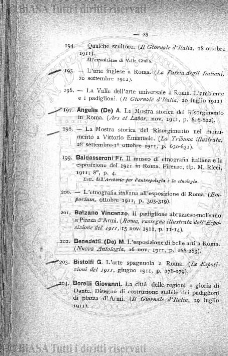 ©BIASA Tutti i diritti riservati
— 29
194. Qualche scultura. (Il Giornale d'Italia, 28 ottobre
1911).
195. — L'arte inglese a Roma. (La Patria degli Italiani,
20 settembre 1911).
196. — La Valle dell'arte universale a Roma. L'ambiente
e i padiglioni. (Il Giornale d'Italia, 20 luglio 1911)
197. Angelis (De) A. La Mostra storica del Risorgimento
in Roma. (Ars et Labor, nov. 1911, p.
198. — La Mostra storica del Risorgimento nel monumento
a Vittorio Emanuele. (La Tribuna illustrata,
settembre-1° ottobre 1911, p.
199. Baldasseroni Fr. Il museo di etnografia italiana e la
esposizione del 1911 in Roma. Firenze, tip. M. Ricci,
1911; 8°, p. 4.
Estr. dall'Archivio per l'antropologia e la etnologia
200. — L'etnografia italiana all'esposizione di Roma. (Emporium,
ottobre 1911, p. 303-319).
201. Balzano Vincenzo. Il padiglione abruzzese-molisano
a Piazza d'Armi. (Roma, rassegna illustrata dell'Esposizione
del 1911, 15 nov 1911, p. 11-14).
202. Benedetti (De) M. L'esposizione di belle arti a Roma.
(Nuova Antologia, 16 nov. 1911, p.
203. Bistolfi G. L'arte spagnuola a Roma. (Le Esposizioni
del 1911, giugno 1911, p. 276-279).
204. Borelli Giovanni. La città delle regioni e gloria di
Dante. Disegno di costruzione stabile dei padiglioni
di piazza d'Armi. (Il Giornale d'Italia, 29 luglio
1911).
©BIASA Tutti i diritti riservati